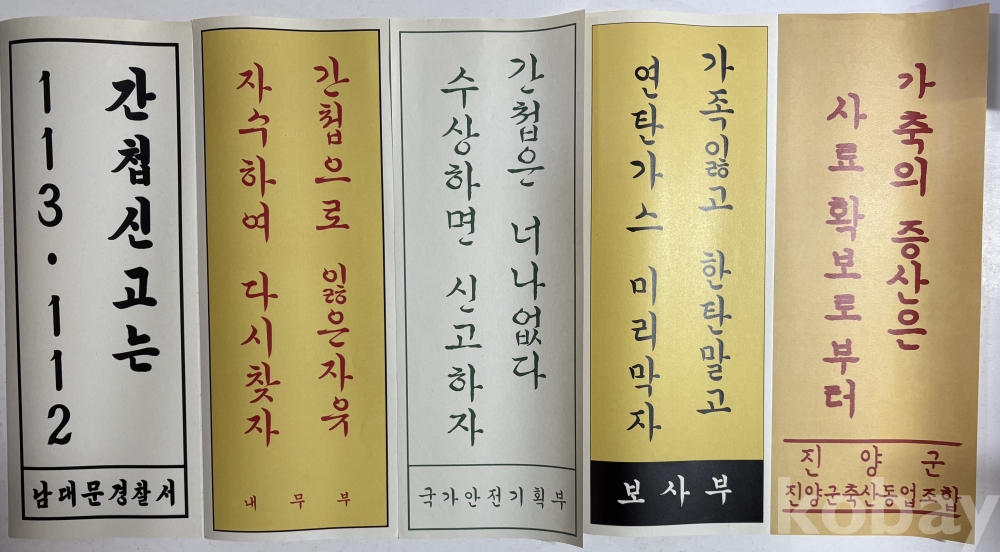 간첩신고는
113·112
남대문경찰서
간첩으로 잃은자유
자수하여 다시찾자
내무부
간첩은 너나없다
수상하면 신고하자
국가안전기획부
가족잃고 한탄말고
연탄가스 미리막자
보사부
가축의 증산은
사료확보로부터
진양군
진양군축산동업조합
kobay